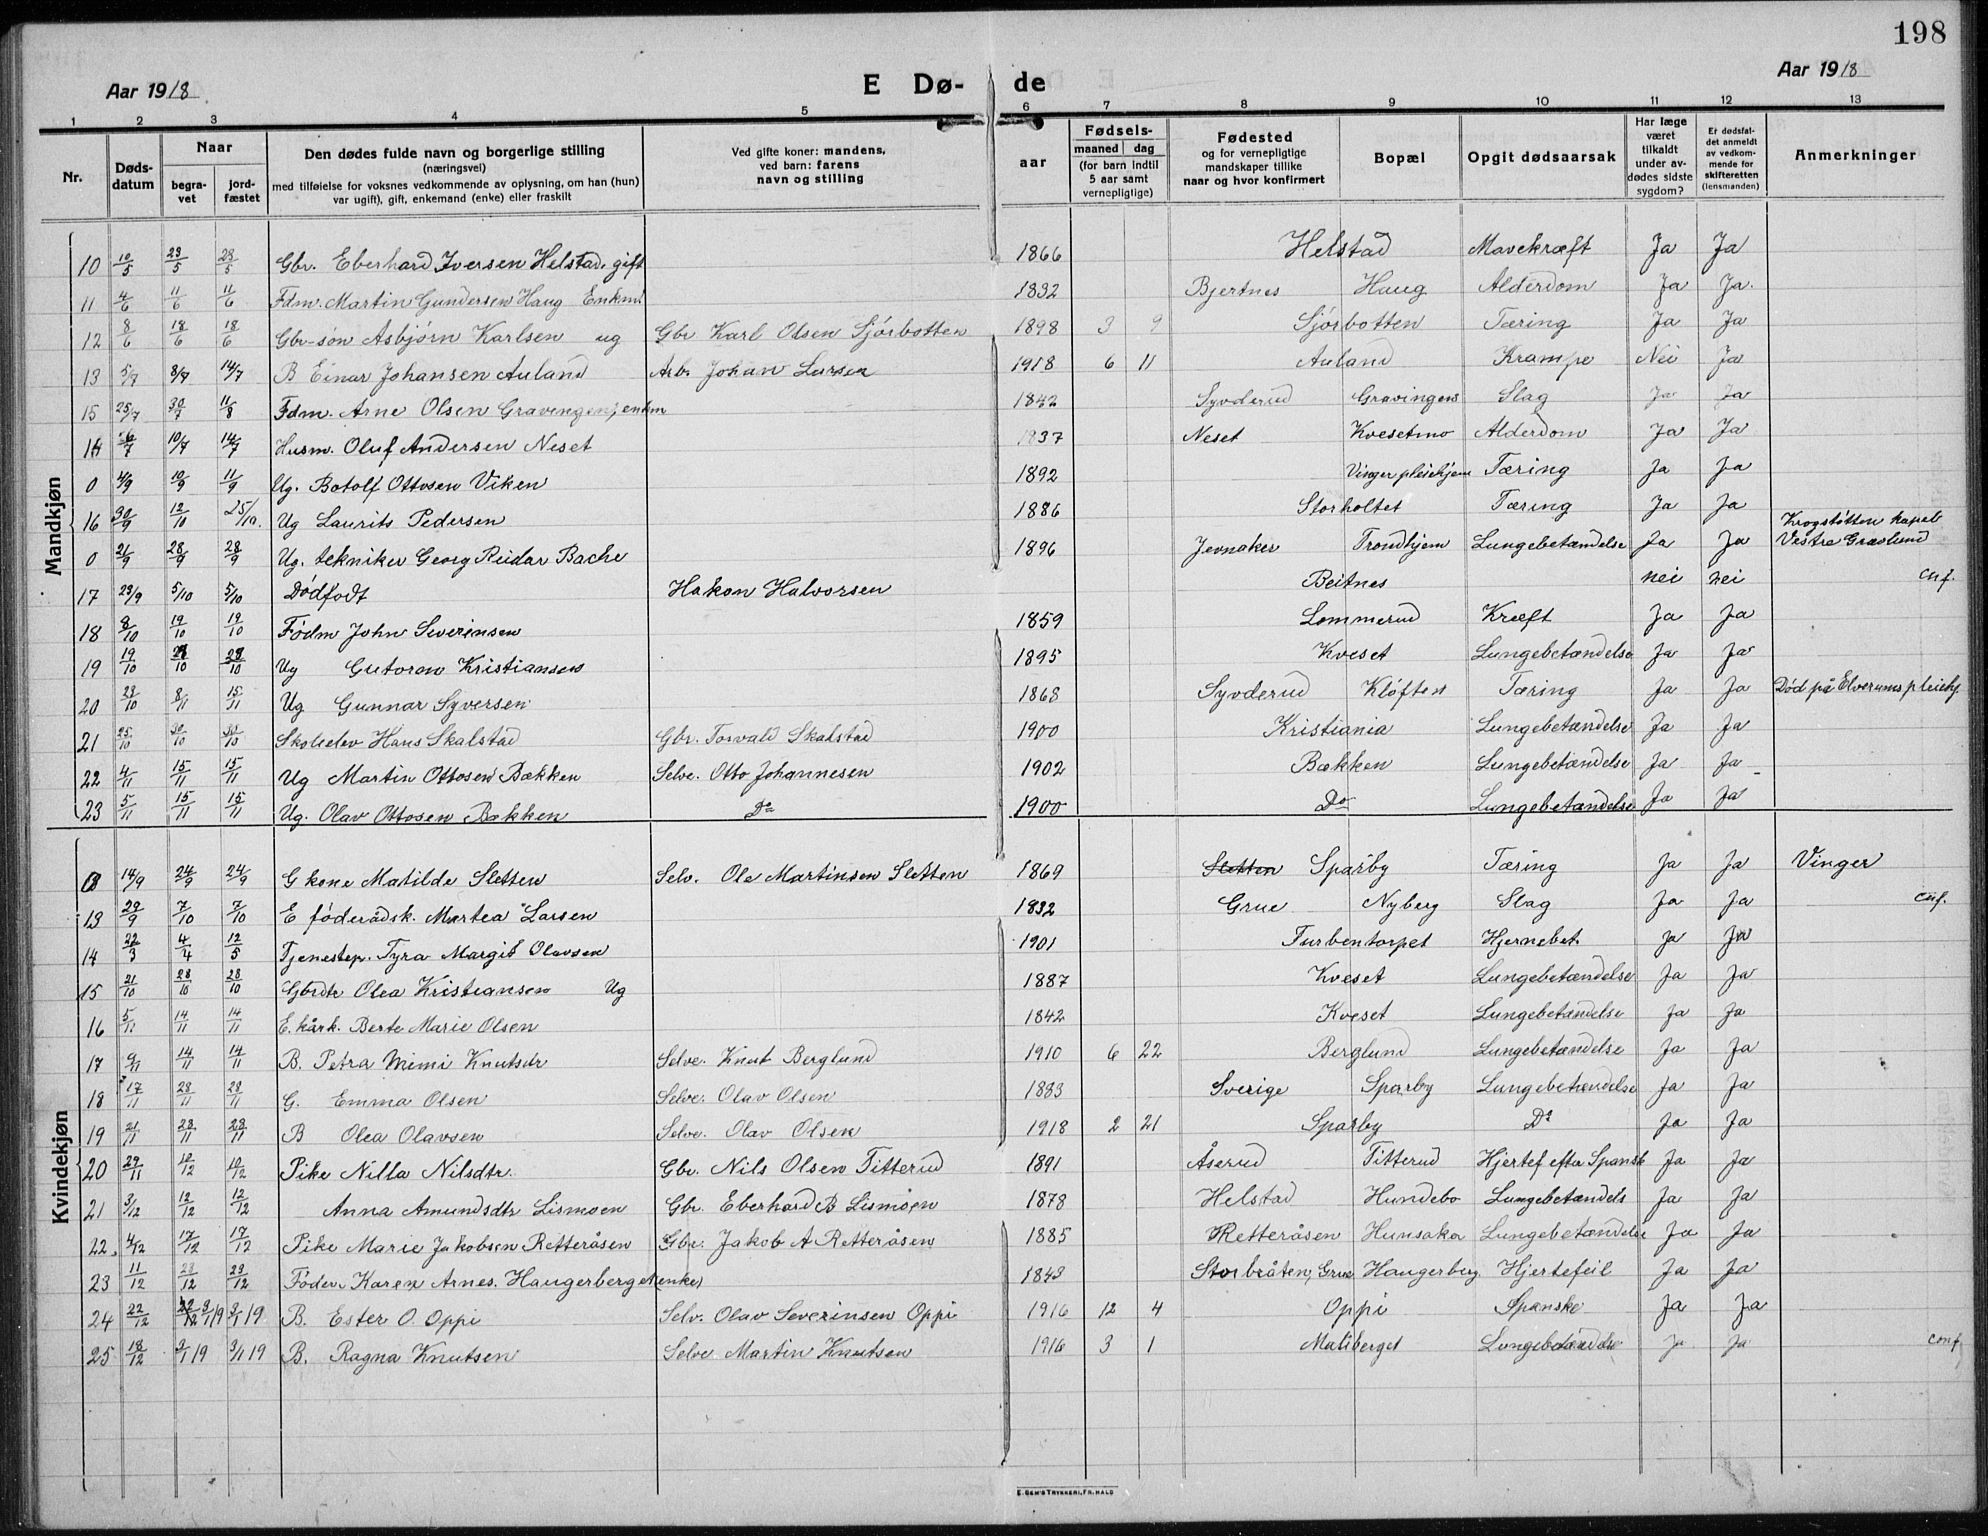 198
Aar 1918 E Dø- de Aar 1918
1 2 3 4 5 6 7 8 9 10 11 12 13
Nr. Døds-datum Naar begra-vet jord-fæstet Den dødes fulde navn og borgerlige stilling (næringsvei) med tilføielse for voksnes vedkommende av oplysning, om han (hun) var ugift), gift, enkemand (enke) eller fraskilt Ved gifte koner: mandens, ved barn: farens navn og stilling aar Fødsels- maaned dag (for barn indtil 5 aar samt vernepligtige) Fødested og for vernepligtige mandskaper tillike naar og hvor konfirmert Bopæl Opgit dødsaarsak Har læge været tilkaldt under av-dødes sidste sygdom? Er dødsfal-det anmeldt av vedkom-mende for skifteretten (lensmanden) Anmerkninger
Mandkjøn
10 10/5 23/5 23/5 Gbr. Eberhard Iversen Helstad. gift 1866 Helstad Mavekræft Ja Ja
11 4/6 11/6 11/6 Fdm. Martin Gundersen Haug Enkm. 1832 Bjertnes Haug Alderdom Ja Ja.
12 8/6 18/6 18/6 Gbr-søn Asbjørn Karlsen ug Gbr Karl Olsen Sjørbotten 1898 3 9 Sjørbotten Tæring Ja Ja
13 5/7 8/7 14/7 B Einar Johansen Auland Arb. Johan Larsen 1918 6 11 Auland Krampe Nei Ja
15 25/7 30/7 11/8 Fdm. Arne Olsen Gravingen, enkm 1842 Syvderud Gravingen Slag Ja Ja
14 6/7 10/7 14/7 Husm. Oluf Andersen Neset 1837 Neset Kvesetmo Alderdom Ja Ja
0 4/9 10/9 11/9 Ug. Botolf Ottosen Viken 1892 Vinger pleiehjem Tæring Ja Ja
16 30/9 12/10 25/10. Ug Laurits Pedersen 1886 Storholtet Tæring Ja Ja
0 21/9 28/9 28/9 Ug. tekniker Georg Reidar Bache 1896 Jevnaker Trondhjem Lungebetændelse Ja Ja Krogstøtten kapel Vestre Graslund
17 23/9 5/10 5/10 Dødfødt Hakon Halvorsen Beitnes nei nei cnf.
18 8/10 19/10 19/10 Fødm John Severinsen 1859 Lommerud Kræft Ja Ja
19 19/10 28/10 28/10 Ug Gutorm Kristiansen 1895 Kveset Lungebetændelse Ja Ja
20 23/10 8/11 15/11 Ug Gunnar Syversen 1868 Syvderud Kløften Tæring Ja Ja Død på Elverums pleiehj
21 25/10 30/10 30/10 Skoleelev Hans Skalstad Gbr. Torvald Skalstad 1900 Kristiania Lungebetændelse Ja Ja
22 4/11 15/11 15/11 Ug Martin Ottosen Bækken Selve. Otto Johannesen 1902 Bækken Lungebetændelse Ja Ja
23 5/11 15/11 15/11 Ug. Olav Ottosen Bækken Do 1900 Do Lungebetændelse Ja Ja
Kvindekjøn
0 14/9 24/9 24/9 G kone Matilde Sletten Selv. Ole Martinsen Sletten 1869 Sletten Sparby Tæring Ja Ja Vinger
13 29/9 7/10 7/10 E føderådsk. Martea Larsen 1832 Grue Nyberg Slag Ja Ja cnf.
14 22/3 4/4 12/5 Tjenestep. Tyra Margit Olavsen 1901 Furbentorpet Hjernebet. Ja Ja
15 21/10 28/10 28/10 Gbrdtr Olea Kristiansen Ug 1887 Kveset Lungebetændelse Ja Ja
16 5/11 14/11 14/11 E. kårk. Berte Marie Olsen 1842 Kveset Lungebetændelse Ja Ja
17 9/11 14/11 14/11 B. Petra Mimi Knutsdr Selve. Knut Berglund 1910 6 22 Berglund Lungebetændelse Ja Ja
18 17/11 28/11 28/11 G. Emma Olsen Selve. Olav Olsen 1883 Sverige Sparby Lungebetændelse Ja Ja
19 21/11 28/11 28/11 B Olea Olavsen Selve. Olav Olsen 1918 2 21 Sparby Do Ja Ja
20 29/11 10/12 10/12 Pike Nilla Nilsdtr. Gbr. Nils Olsen Titterud 1891 Åserud Titterud Hjertef efter Spansk Ja Ja
21 3/12 12/12 12/12 Anna Amundsdtr Lismoen Gbr. Eberhard B Lismoen 1878 Helstad Hundebo Lungebetændels Ja Ja
22. 4/12 17/12 17/12 Pike Marie Jakobsen Retteråsen Gbr. Jakob A Retteråsen 1885 Retteråsen Hunsaka Lungebetændelse Ja Ja
23 11/12 23/12 23/12 Føder. Karen Arnes. Haugerberget (enke) 1843 Storbråten, Grue Haugerberg Hjertefeil Ja Ja
24 22/12 3/1 19 3/1 19 B. Ester O. Oppi Selv. Olav Severinsen Oppi 1916 12 4 Oppi Spanske Ja Ja
25 18/12 3/1 19 3/1 19 B. Ragna Knutsen Selve Martin Knutsen 1916 3 1 Maliberget Lungebetændelse Ja Ja conf
E. SEM'S TRYKKERI, FR. HALD